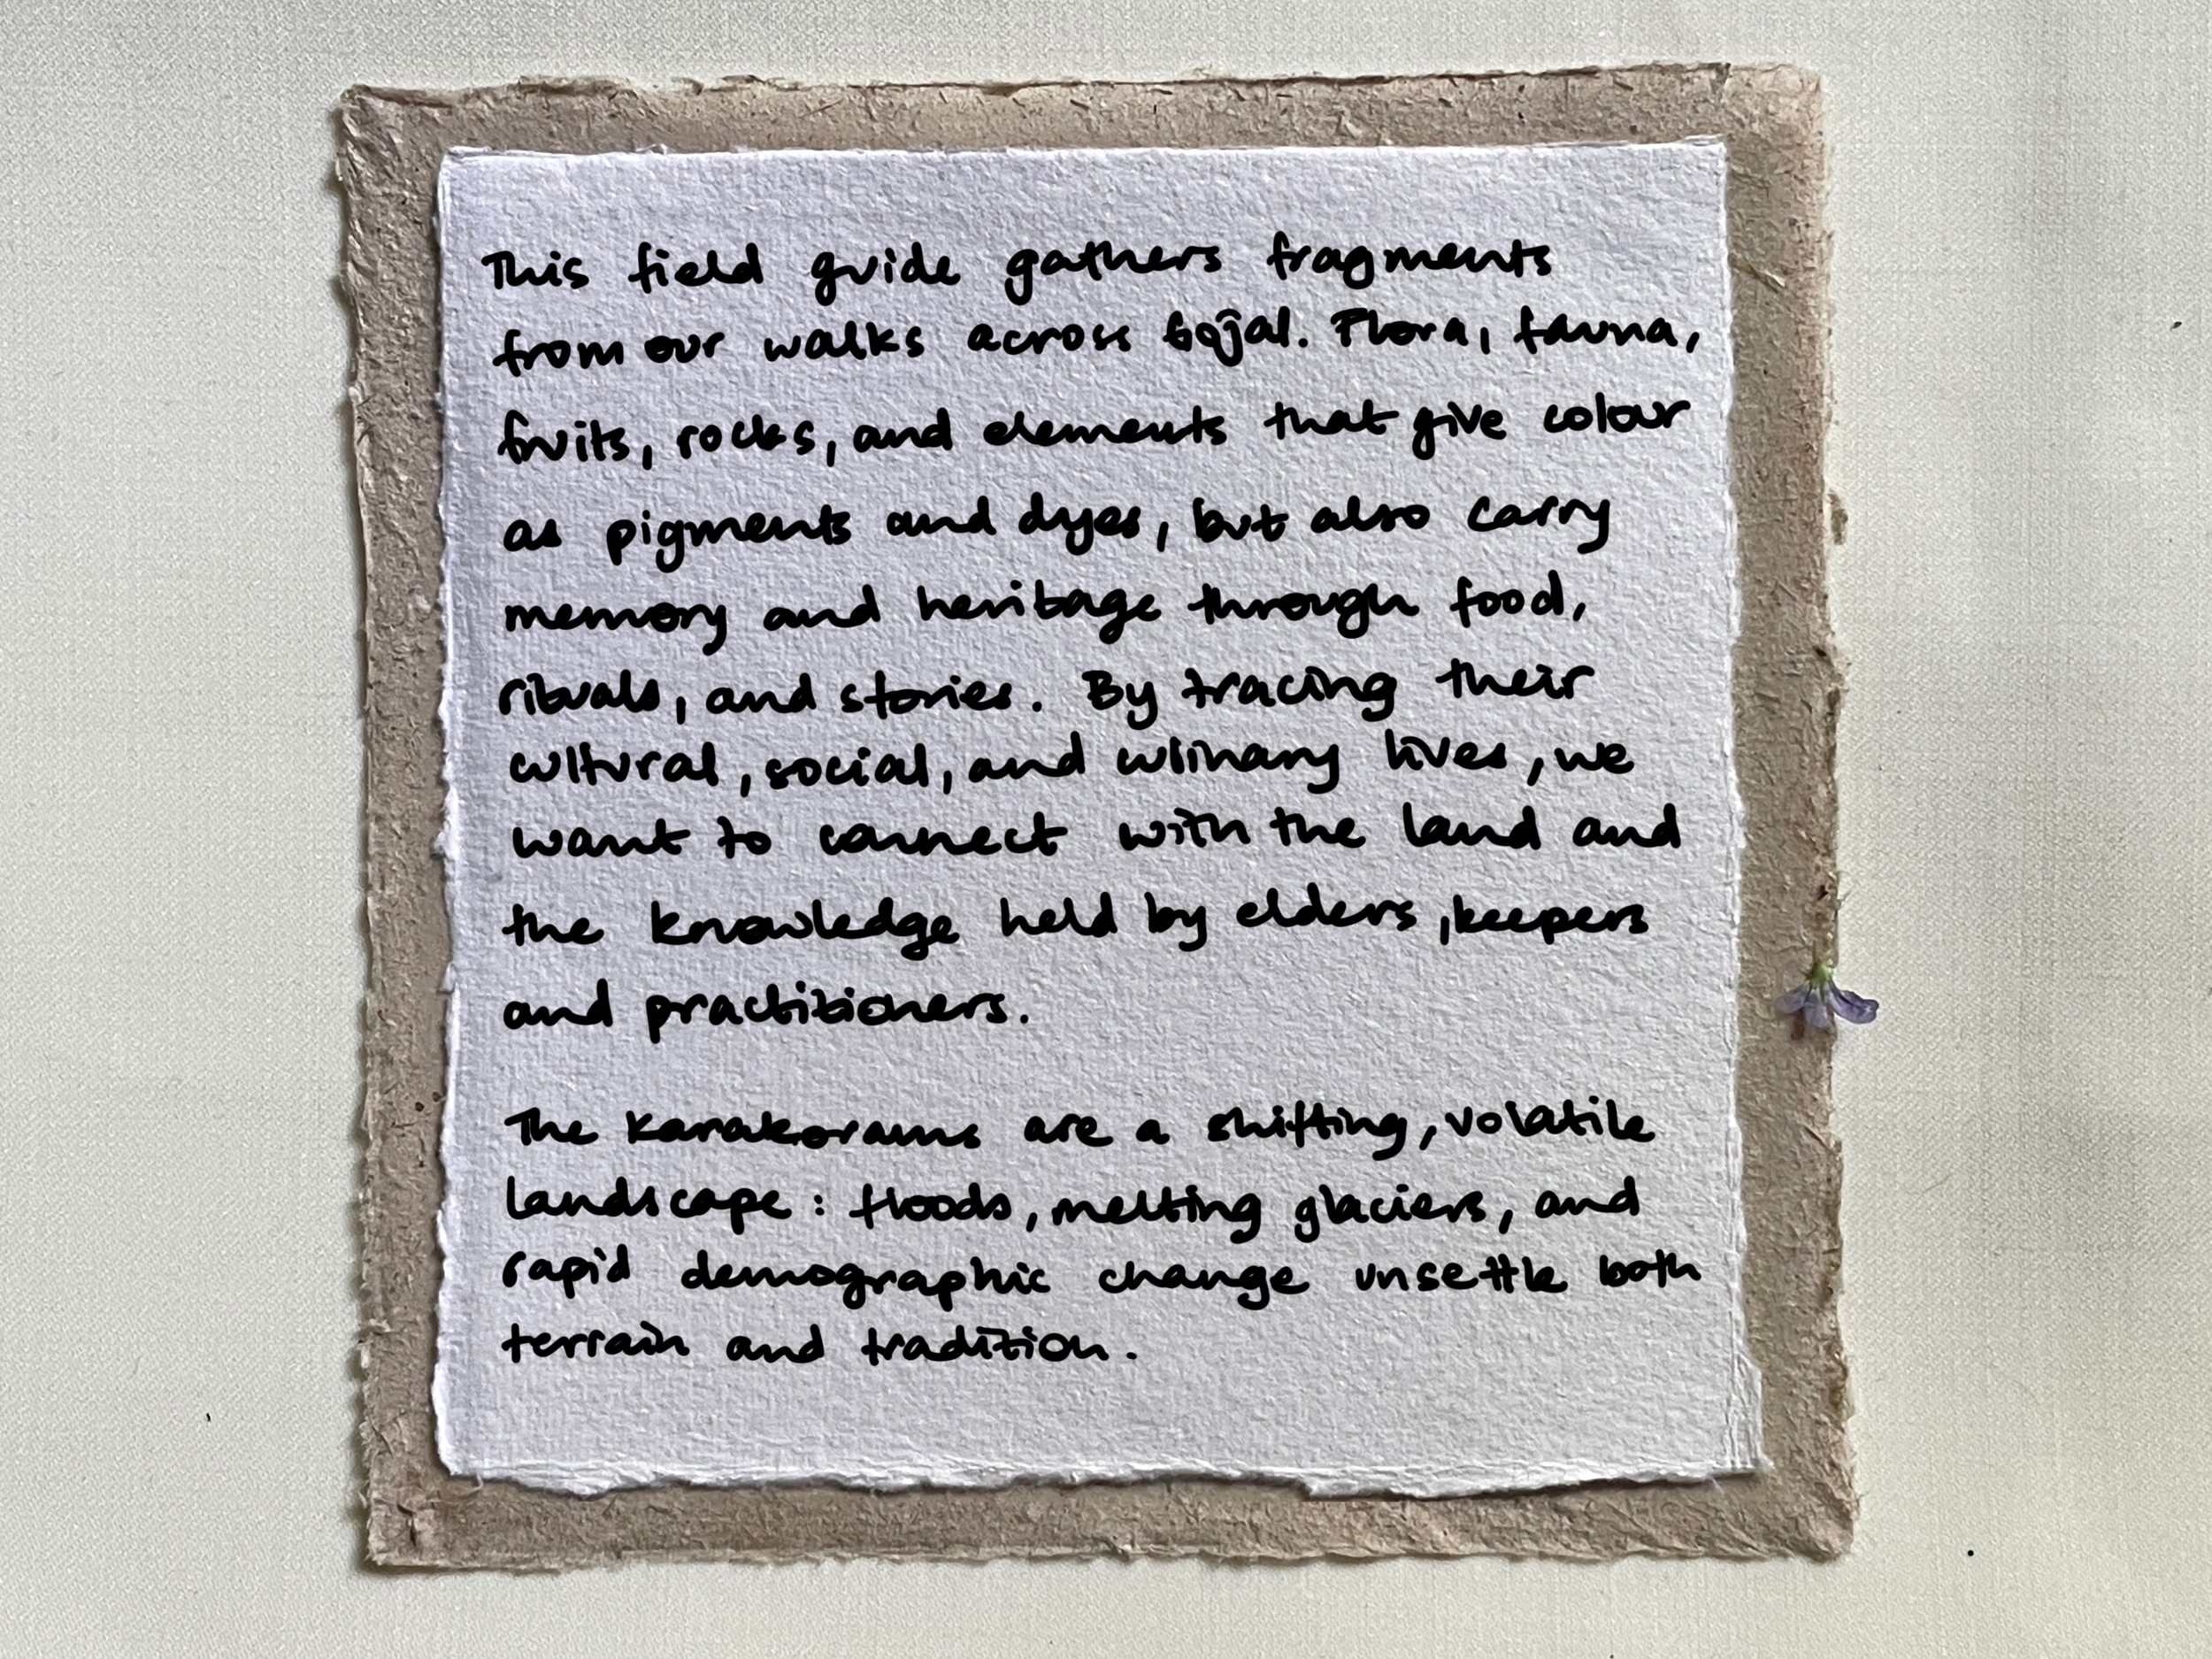 This field guide gathers fragments
from our walks across Gojal. Flora, fauna,
fruits, rocks, and elements that give colour
as pigments and dyes, but also carry
memory and heritage through food,
rituals, and stories. By tracing their
cultural, social, and culinary lives, we
want to connect with the land and
the knowledge held by elders, keepers
and practitioners.
The Karakorams are a shifting, volatile
landscape: floods, melting glaciers, and
rapid demographic change unsettle both
terrain and tradition.